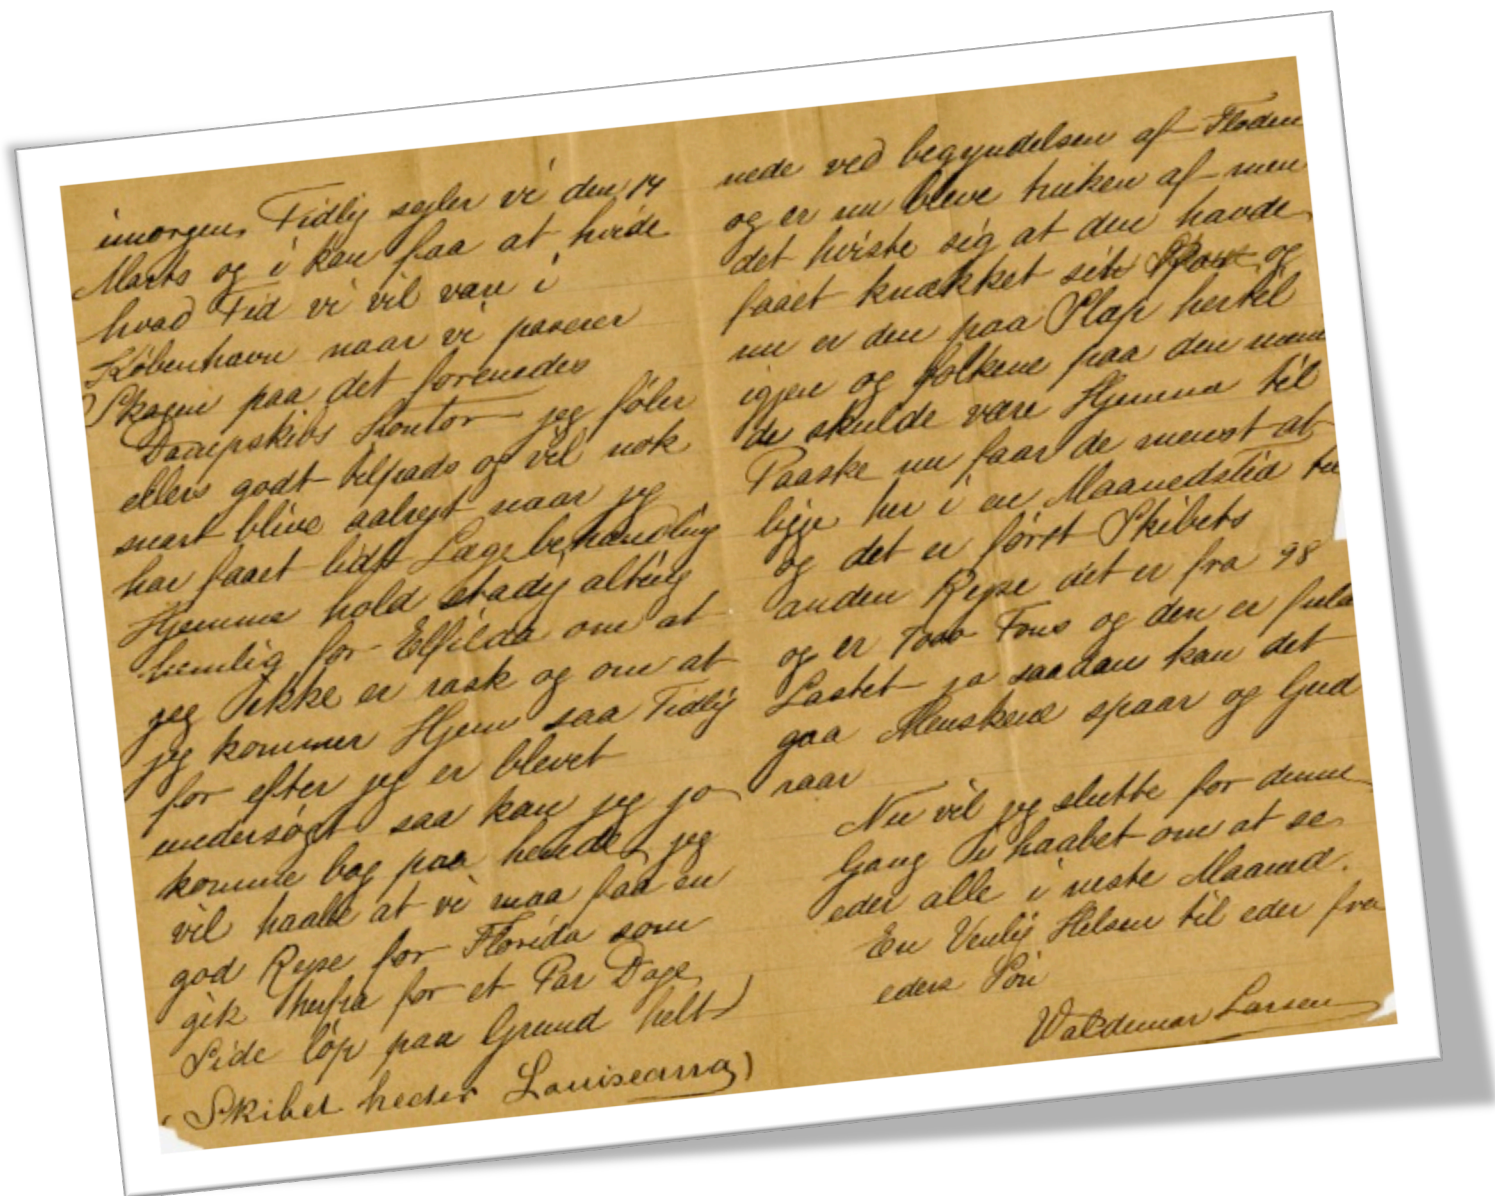 imorgen, Tidlig sejler vi den 14
Marts og i kan faa at hvide
hvad Tid vi vil være i
København naar vi paserer
Skagen paa det forenedes
Dampskibs Kontor jeg føler
ellers godt tilpads og vil nok
snart blive aalrejt naar jeg
har faaet lidt Lægebehandling
Hjemme hold stadig alting
hemlig for Elfilda om at
jeg ikke er rask og om at
jeg kommer Hjem saa Tidlig
for efter jeg er blevet
undersøgt saa kan jeg jo
komme bag paa hende, jeg
vil haabe at vi maa faa en
god Rejse for Florida som
gik herfra for et Par Dage
Side løp paa Grund helt
(Skibet heder Louiseana)
nede ved begyndelsen af Floden
og er nu bleve truken af men
det hviste sig at den havde
faaet knækket sit og
nu er den paa Slæp hertil
igjen og folkene paa den
de skulde være Hjemme til
Paaske nu faar de menst at
ligge her i en Maanedstid
og det er først Skibets
anden Rejse det er fra 98
og er Tons og den er fuld
Lastet ja saadan kan det
gaa Menskene spaar og Gud
raar
Nu vil jeg slutte for denne
Gang i haabet om at se
eder alle i neste Maaned.
En Venlig Hilsen til eder fra
eders Sön
Waldemar Larsen